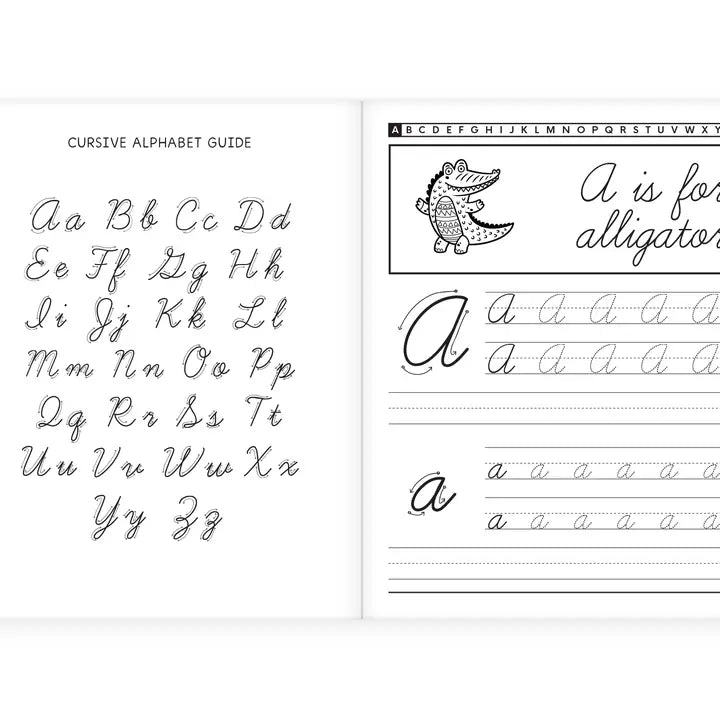 CURSIVE ALPHABET GUIDE
Aa Bb Cc Dd
Ee Ff Gg Hh
Ii Jj Kk Ll
Mm Nn Oo Pp
Qq Rr Ss Tt
Uu Vv Ww Xx
Yy Zz
A B C D E F G H I J K L M N O P Q R S T U V W X Y
A is for
alligator
A A A A A A
A A A A A
a a a a a a a
a a a a a a